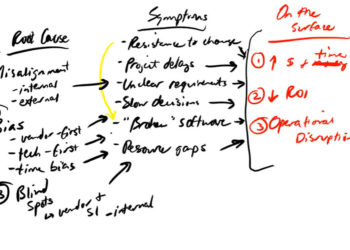 Root Cause
Misalignment
- internal
- external
Bias
- vendor-first
- tech-first
- time bias
3 Blind
Spots
vendor +
SI - internal
Symptoms
- Resistance to change
- Project delays
- Unclear requirements
- Slow decisions
- "Broken" software
- Resource gaps
On the
Surface
1 ↑ $ + time
2 ↓ ROI
3 Operational
Disruption